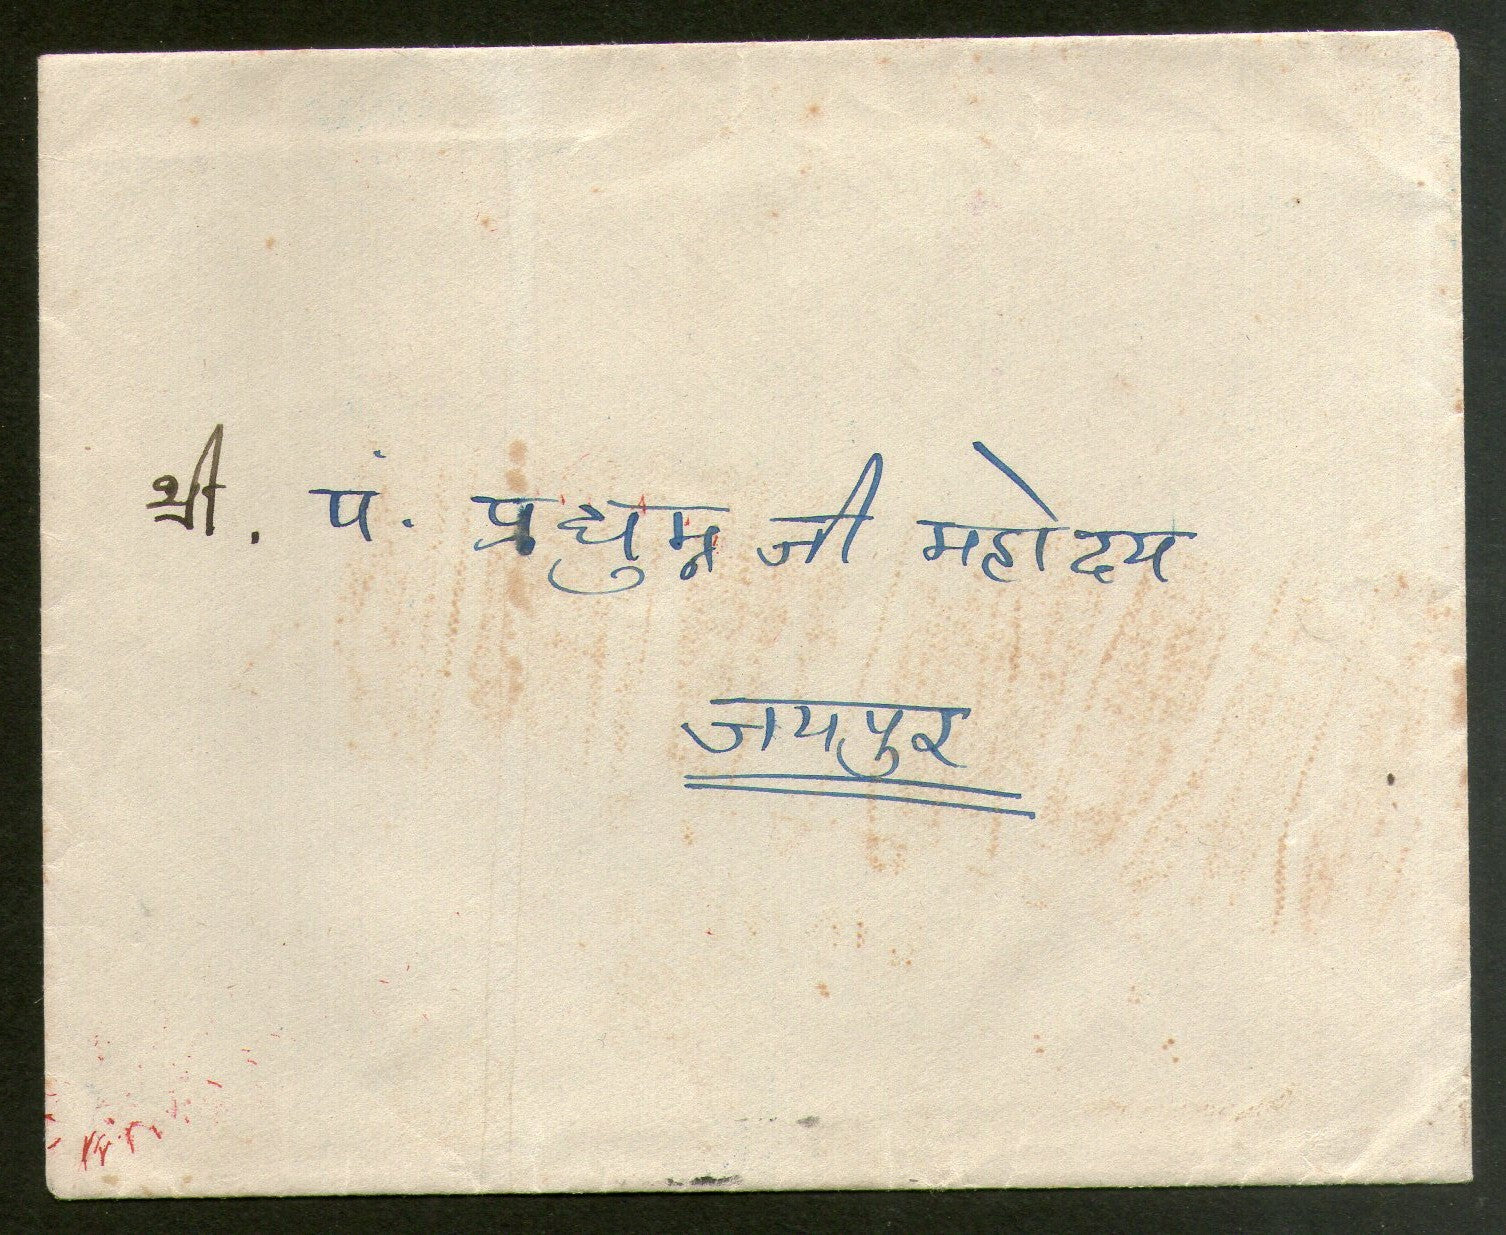 श्री. पं. प्रद्युम्न जी महोदय
जयपुर